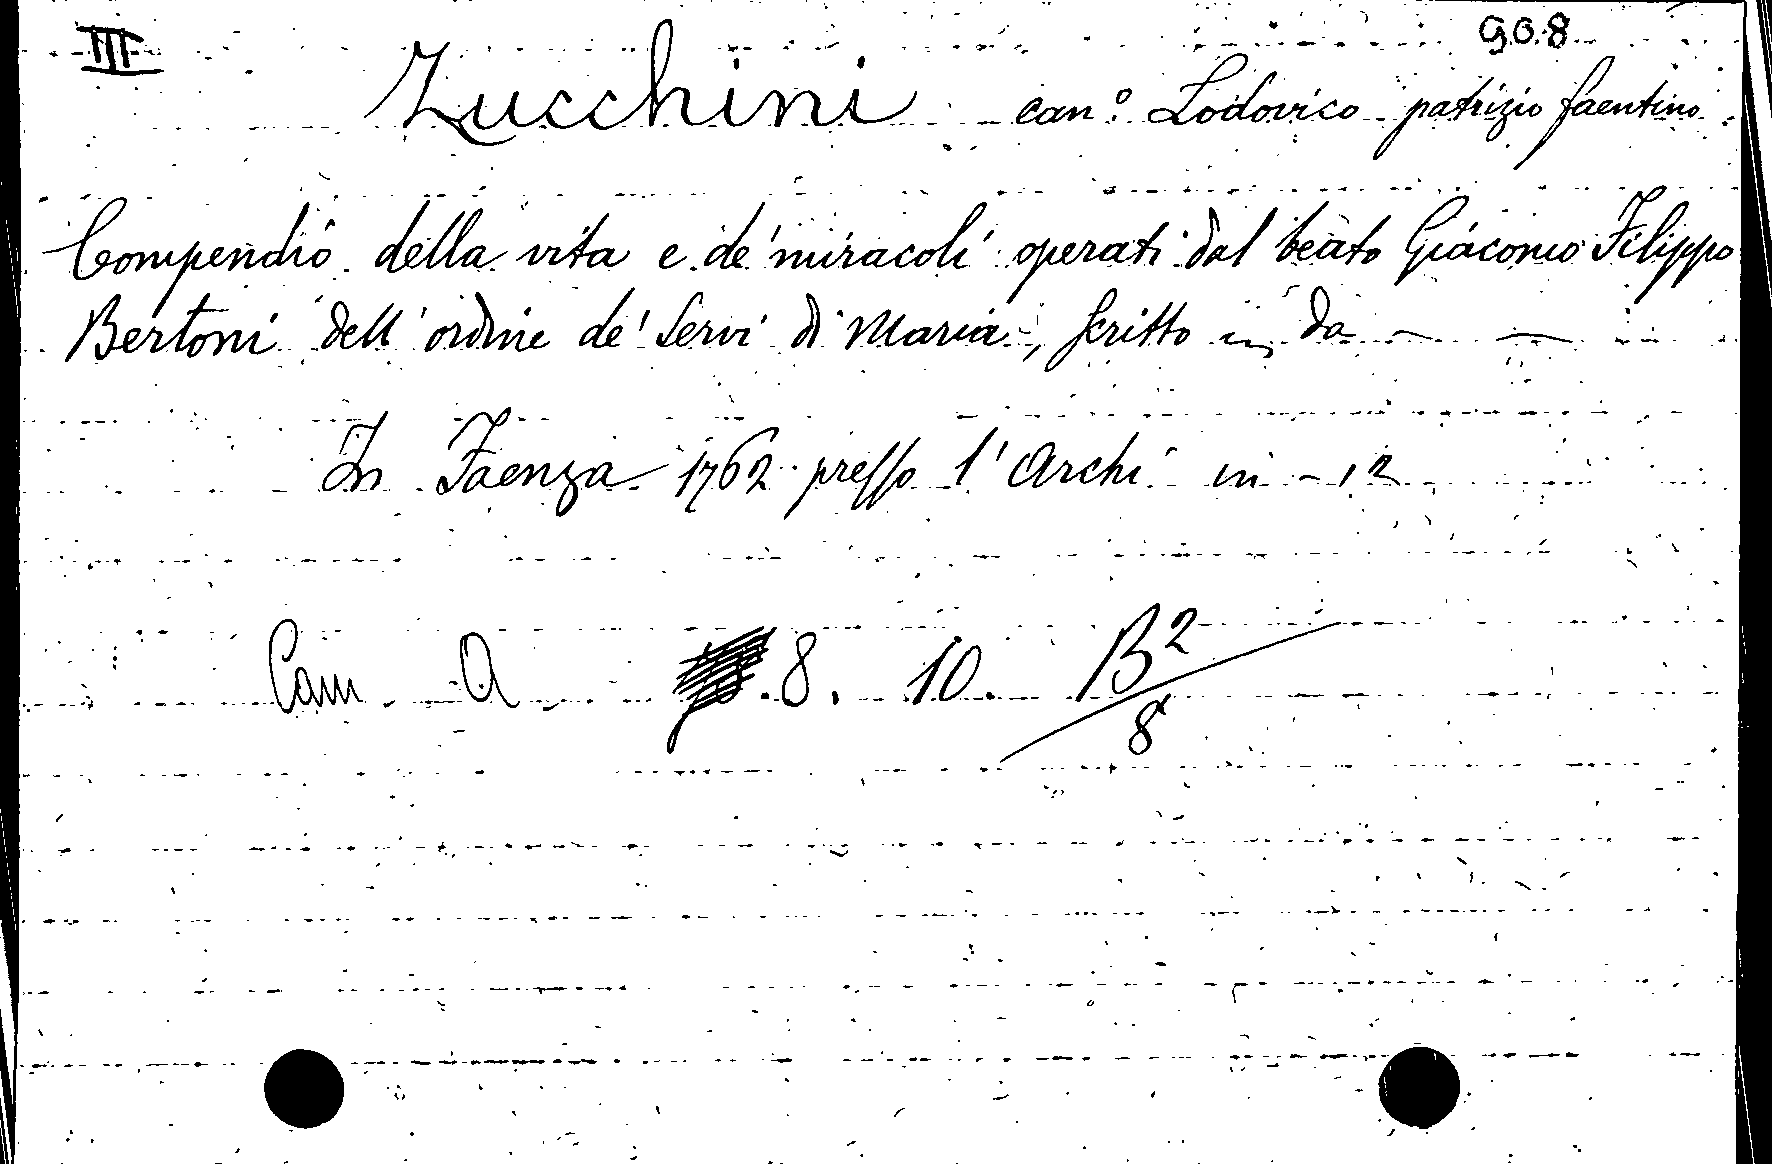 III 908
Zucchini can.º Lodovico patrizio faentino.
Compendio della vita e de' miracoli operati dal beato Giacomo Filippo
Bertoni dell' ordine de' Servi di Maria, scritto da — —
In Faenza 1762 presso l' Archi in - 12
Cam. A 8. 10. B2/8